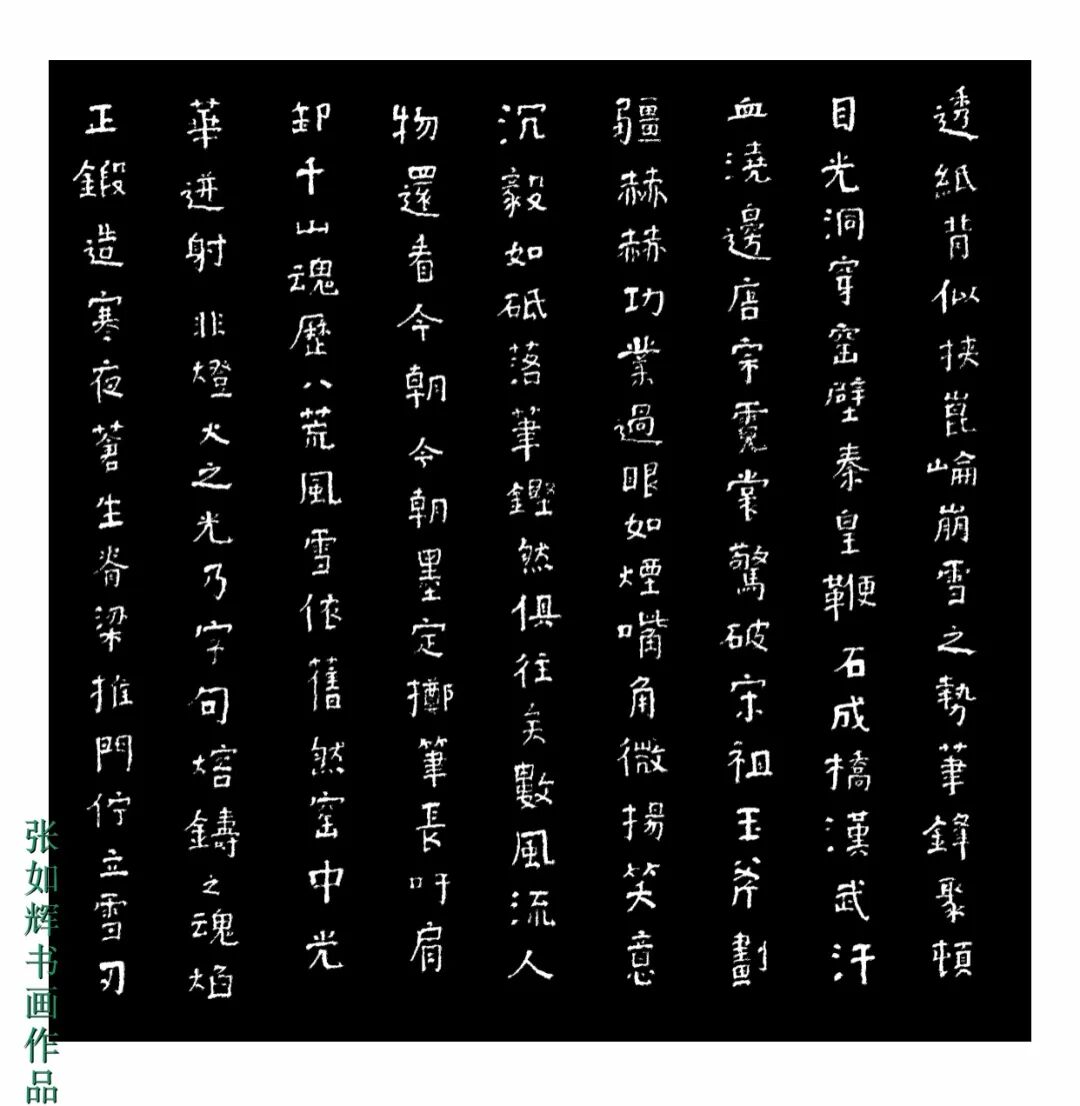 透紙背似挾崑崙崩雪之勢筆鋒聚頓
目光洞穿窑壁秦皇鞭石成橋漢武汗
血澆邊唐宗霓裳驚破宋祖玉斧劃
疆赫赫功業過眼如煙嘴角微揚笑意
沉毅如砥落筆鏗然俱往矣數風流人
物還看今朝今朝墨定擲筆長吁肩
卸千山魂歷八荒風雪依舊然窑中光
華迸射非燈火之光乃字句熔鑄之魂焰
正鍛造寒夜蒼生脊梁推門佇立雪刃
张如辉书画作品